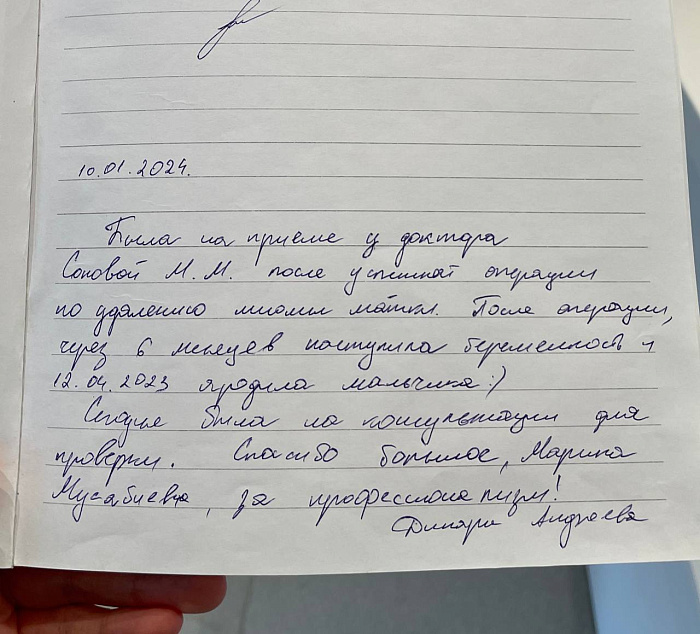 10.01.2024.
Была на приёме у доктора
Соковой М.М. после успешной операции
по удалению миомы матки. После операции,
через 6 месяцев наступила беременность и
12.04.2023 я родила мальчика :)
Сегодня была на консультации для
проверки. Спасибо большое, Марина
Мусабиевна, за профессионализм!
Динара Андреева